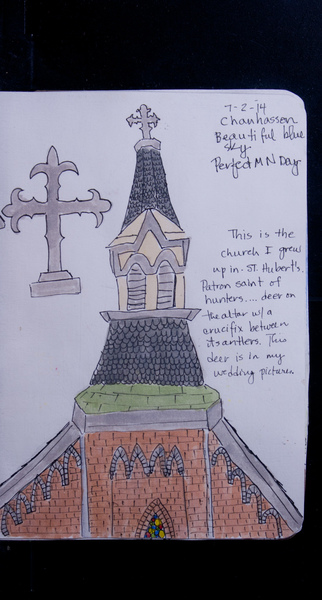 7-2-14
Chanhassen
Beautiful blue
sky
Perfect MN Day
This is the
church I grew
up in. St. Hubert's.
Patron saint of
hunters.... deer on
the altar w/ a
crucifix between
its antlers. This
deer is in my
wedding pictures.